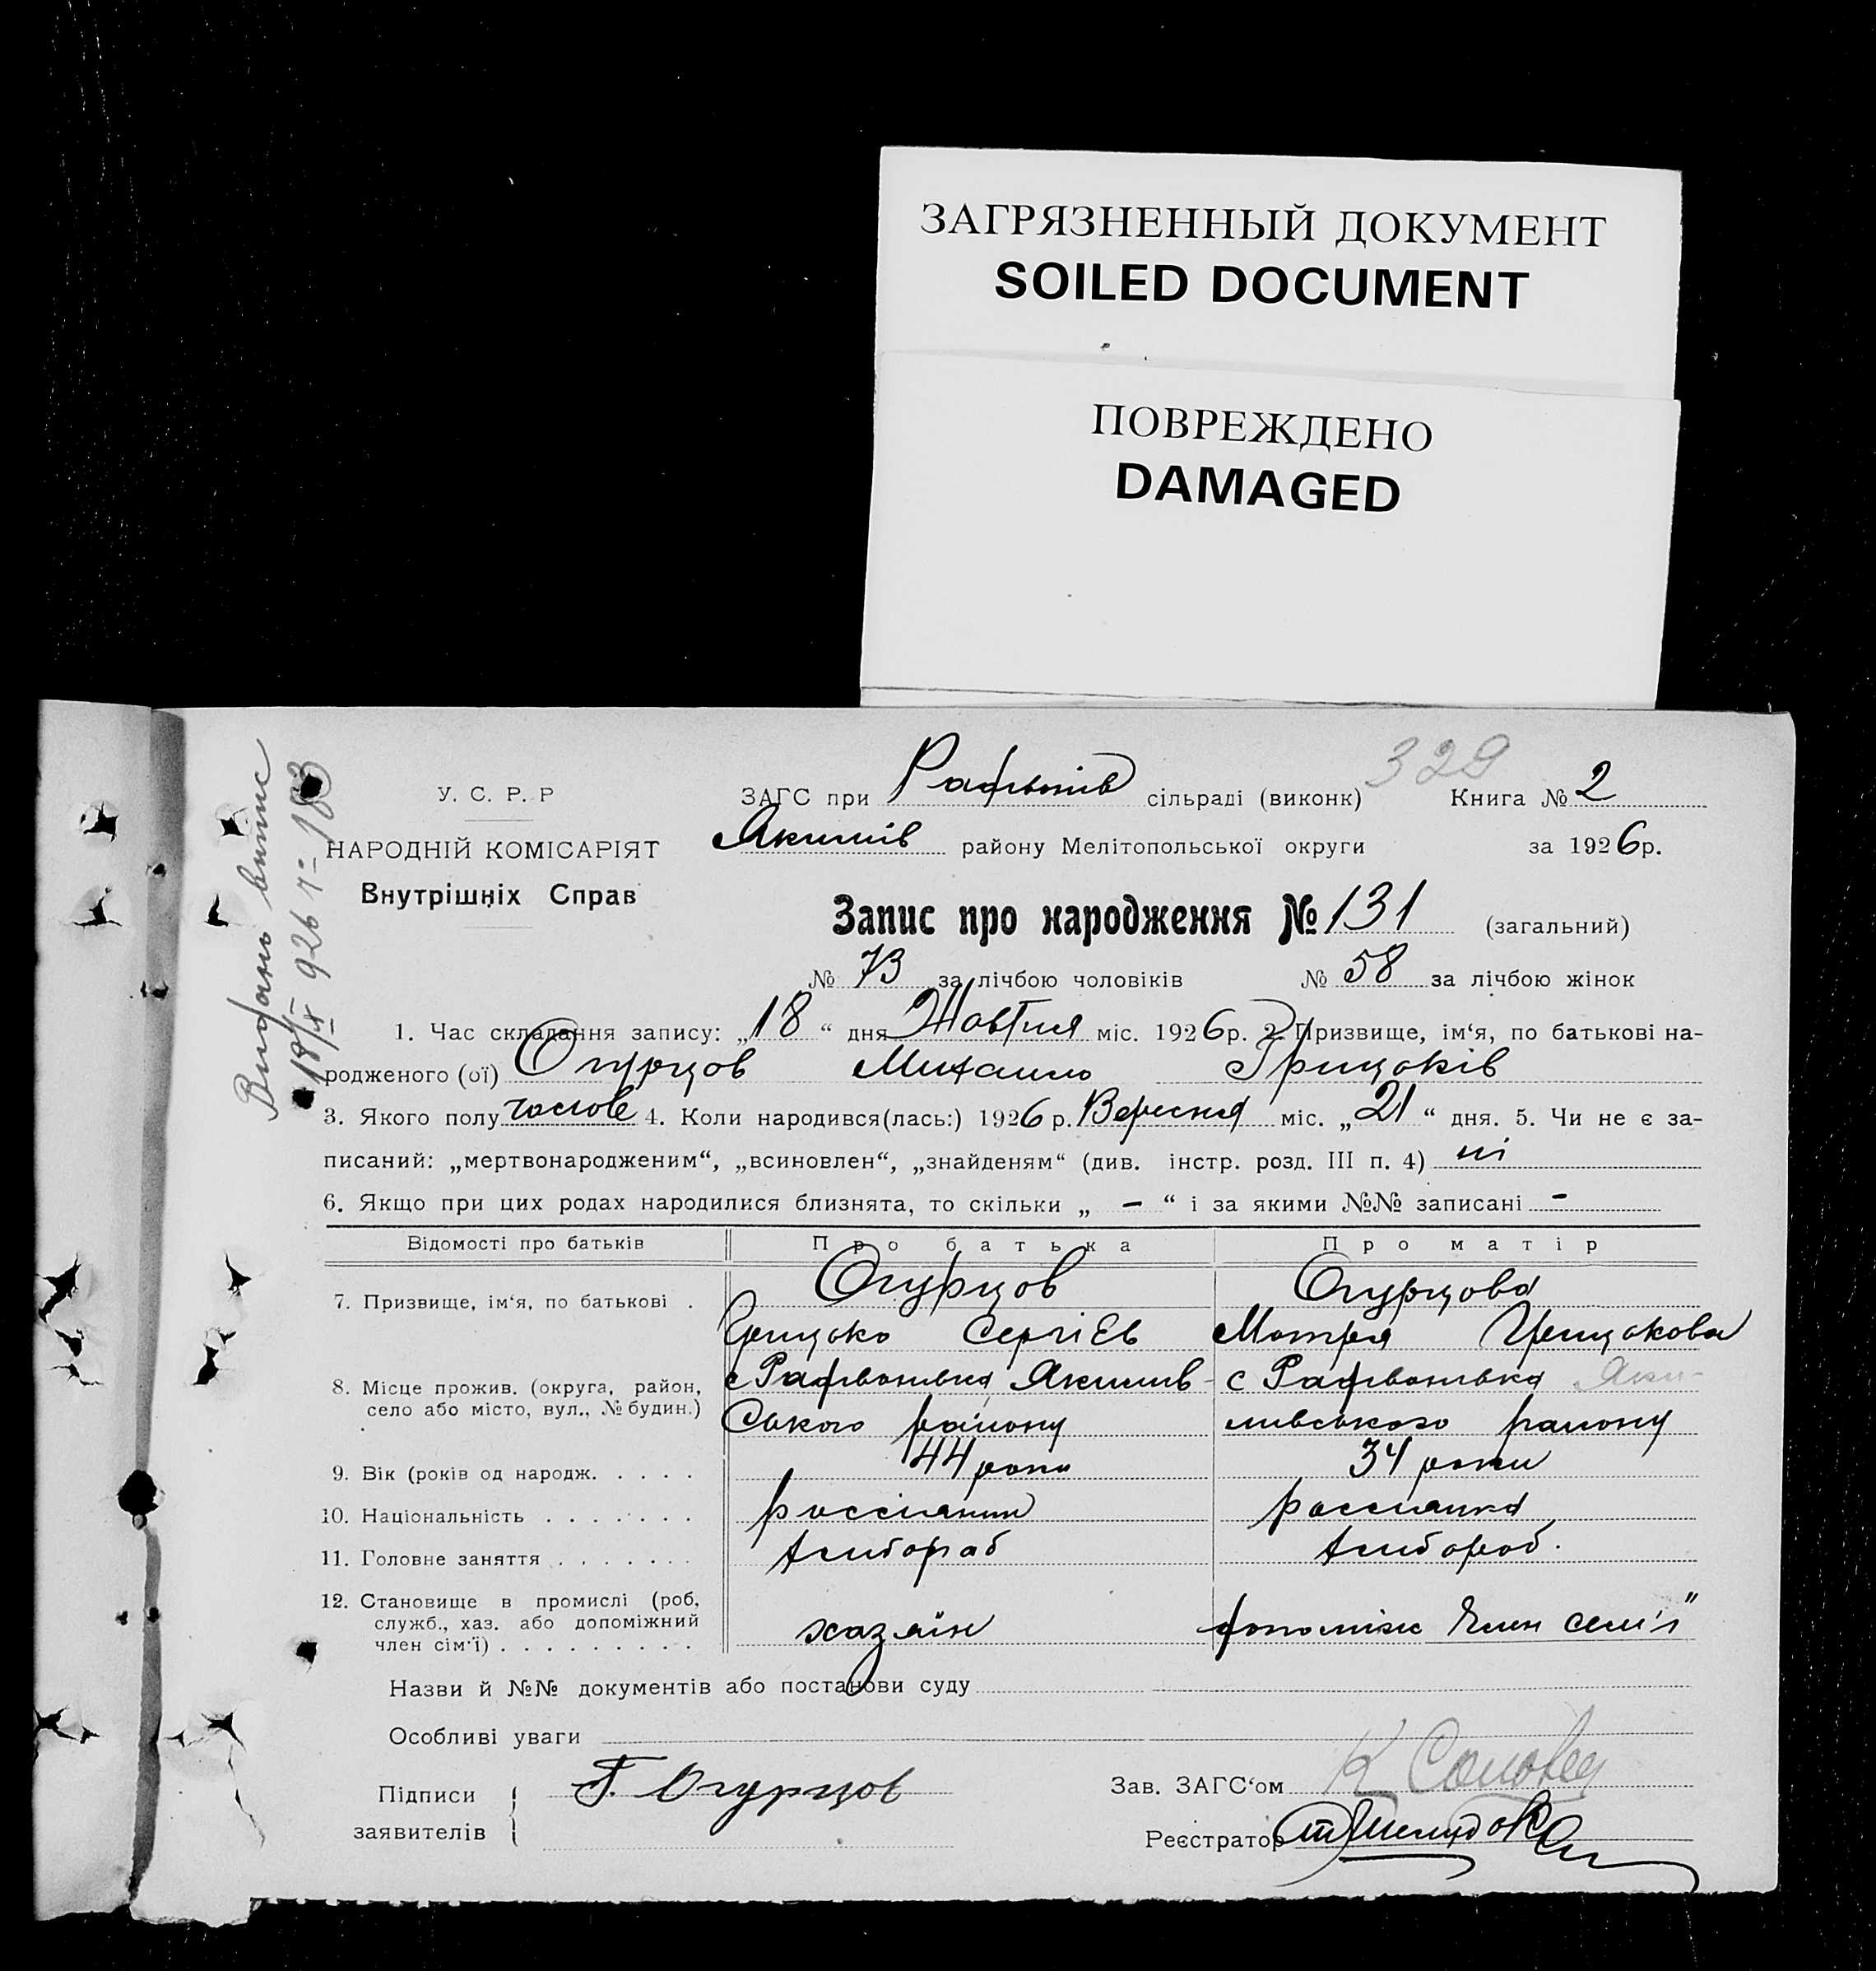 ЗАГРЯЗНЕННЫЙ ДОКУМЕНТ
SOILED DOCUMENT
ПОВРЕЖДЕНО
DAMAGED
329
У. С. Р. Р
НАРОДНІЙ КОМІСАРІЯТ
Внутрішніх Справ
ЗАГС при сільраді (виконк) Книга № 2
Якимів району Мелітопольської округи за 1926р.
Запис про народження № 131 (загальний)
№ 73 за лічбою чоловіків № 58 за лічбою жінок
1. Час складання запису: „18“ дня Жовтня міс. 1926р. 2. Призвище, ім‘я, по батькові на-
родженого (ої) Огурцов Михаило Грицьків
3. Якого полу чолов 4. Коли народився(лась:) 1926 р. Вересня міс. „21“ дня. 5. Чи не є за-
писаний: „мертвонародженим“, „всиновлен“, „знайденям“ (див. інстр. розд. III п. 4) ні
6. Якщо при цих родах народилися близнята, то скільки „ – “ і за якими №№ записані –
Відомості про батьків Про батька Про матір
7. Призвище, ім‘я, по батькові . Огурцов Огурцова
Грицько Сергієв Мотря Грицькова
8. Місце прожив. (округа, район, село або місто, вул., № будин.) с Якимів- с Яки-
ського району мивського району
9. Вік (років од народж. . . . . 44 роки 34 роки
10. Національність . . . . . . . россіянин россиянка
11. Головне заняття . . . . . . . хлібороб хлібороб.
12. Становище в промислі (роб,
служб., хаз. або допоміжний
член сім‘ї) . . . . . . . . . хазяїн допоміжн член семії
Назви й №№ документів або постанови суду
Особливі уваги
Підписи Г. Огурцов Зав. ЗАГС‘ом К
заявителів Реєстратор
Видань випис
18/X 926 р.